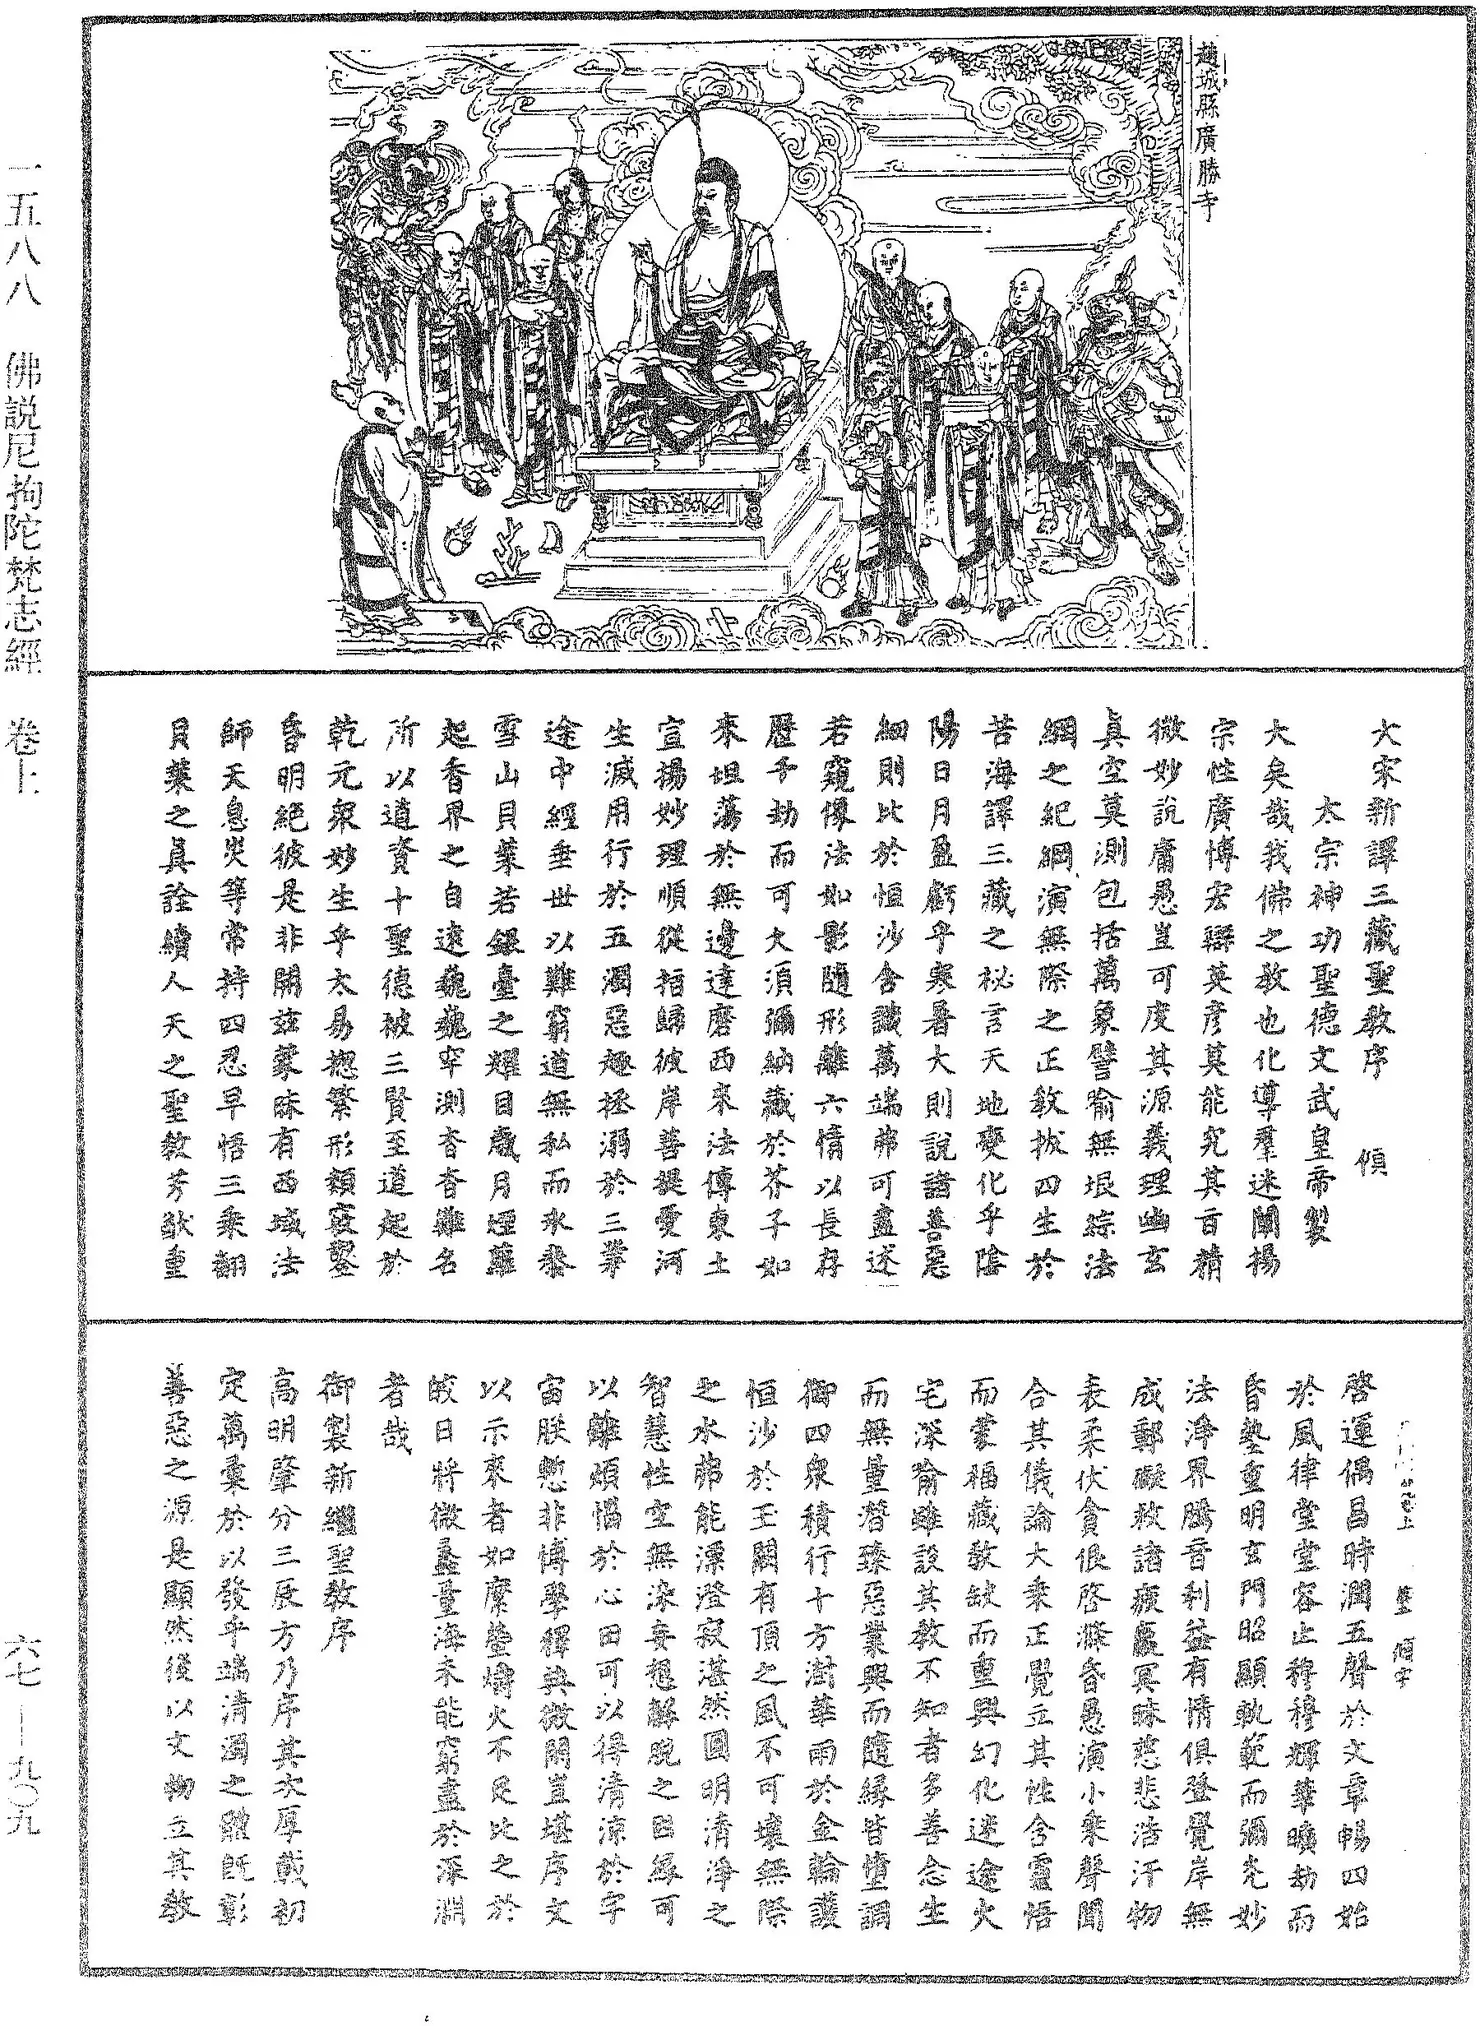 趙城縣廣勝寺
一五八八　佛説尼拘陀梵志經　卷上
六七—九〇九
大宋新譯三藏聖教序　傾
太宗神功聖德文武皇帝製
大矣哉我佛之教也化導羣迷闡揚
宗性廣博宏辯英彦莫能究其旨精
微妙說庸愚豈可度其源義理幽玄
真空莫測包括萬象譬喻無垠綜法
網之紀綱演無際之正教拔四生於
苦海譯三藏之秘言天地變化乎陰
陽日月盈虧乎寒暑大則說諸善惡
細則比於恒沙含識萬端弗可盡述
若窺像法如影隨形離六情以長存
歷千劫而可大須彌納藏於芥子如
來坦蕩於無邊達磨西來法傳東土
宣揚妙理順從指歸彼岸菩提愛河
生滅用行於五濁惡趣拯溺於三業
途中經垂世以難窮道無私而永泰
雪山貝葉若銀臺之耀目歲月煙蘿
起香界之自遠巍巍罕測杳杳難名
所以道資十聖德被三賢至道起於
乾元衆妙生乎太易揔繁形類竅鑿
昏明絕彼是非開兹蒙昧有西域法
師天息災等常持四忍早悟三乘翻
貝葉之真詮續人天之聖教芳猷重
啓運偶昌時潤五聲於文章暢四始
於風律堂堂容止穆穆輝華曠劫而
昏墊重明玄門昭顯軌範而彌光妙
法淨界騰音利益有情俱登覺岸無
成鄣礙救諸疲羸冥昧慈悲浩汗物
表柔伏貪佷啓滌昏愚演小乘聲聞
合其儀論大乘正覺立其性含靈悟
而蒙福藏教缺而重興幻化迷途火
宅深喻雖設其教不知者多善念生
而無量潛臻惡業興而隨緣皆墮調
御四衆積行十方澍華雨於金輪護
恒沙於玉闕有頂之風不可壞無際
之水弗能漂澄寂湛然圓明清淨之
智慧性空無染妄想解脫之因緣可
以離煩惱於心田可以得清涼於宇
宙朕慙非博學釋典微閑豈堪序文
以示來者如縻螢爝火不足比之於
皎日將微蠡量海未能窮盡於深淵
者哉
御製新繼聖教序
高明肇分三辰方乃序其次厚載初
定萬彙於以發乎端清濁之體既彰
善惡之源是顯然後以文物立其教